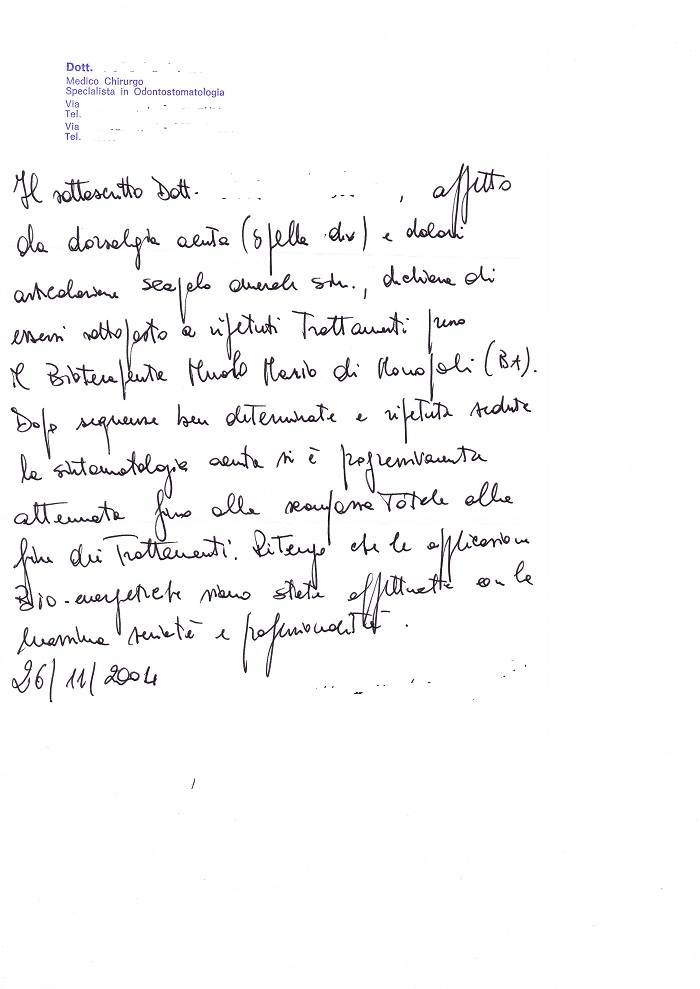 Dott.
Medico Chirurgo
Specialista in Odontostomatologia
Via
Tel.
Via
Tel.
Il sottoscritto Dott. , affetto
da dorsalgia acuta (spalla dx) e dolori
articolazione scapolo omerale sin., dichiara di
essersi sottoposto a ripetuti Trattamenti presso
il Bioterapeuta Muolo Mario di Monopoli (BA).
Dopo sequenze ben determinate e ripetute sedute
la sintomatologia acuta si è progressivamente
attenuata fino alla scomparsa Totale alla
fine dei Trattamenti. Ritengo che le applicazioni
Bio-energetiche siano state effettuate con la
massima serietà e professionalità.
26/11/2004